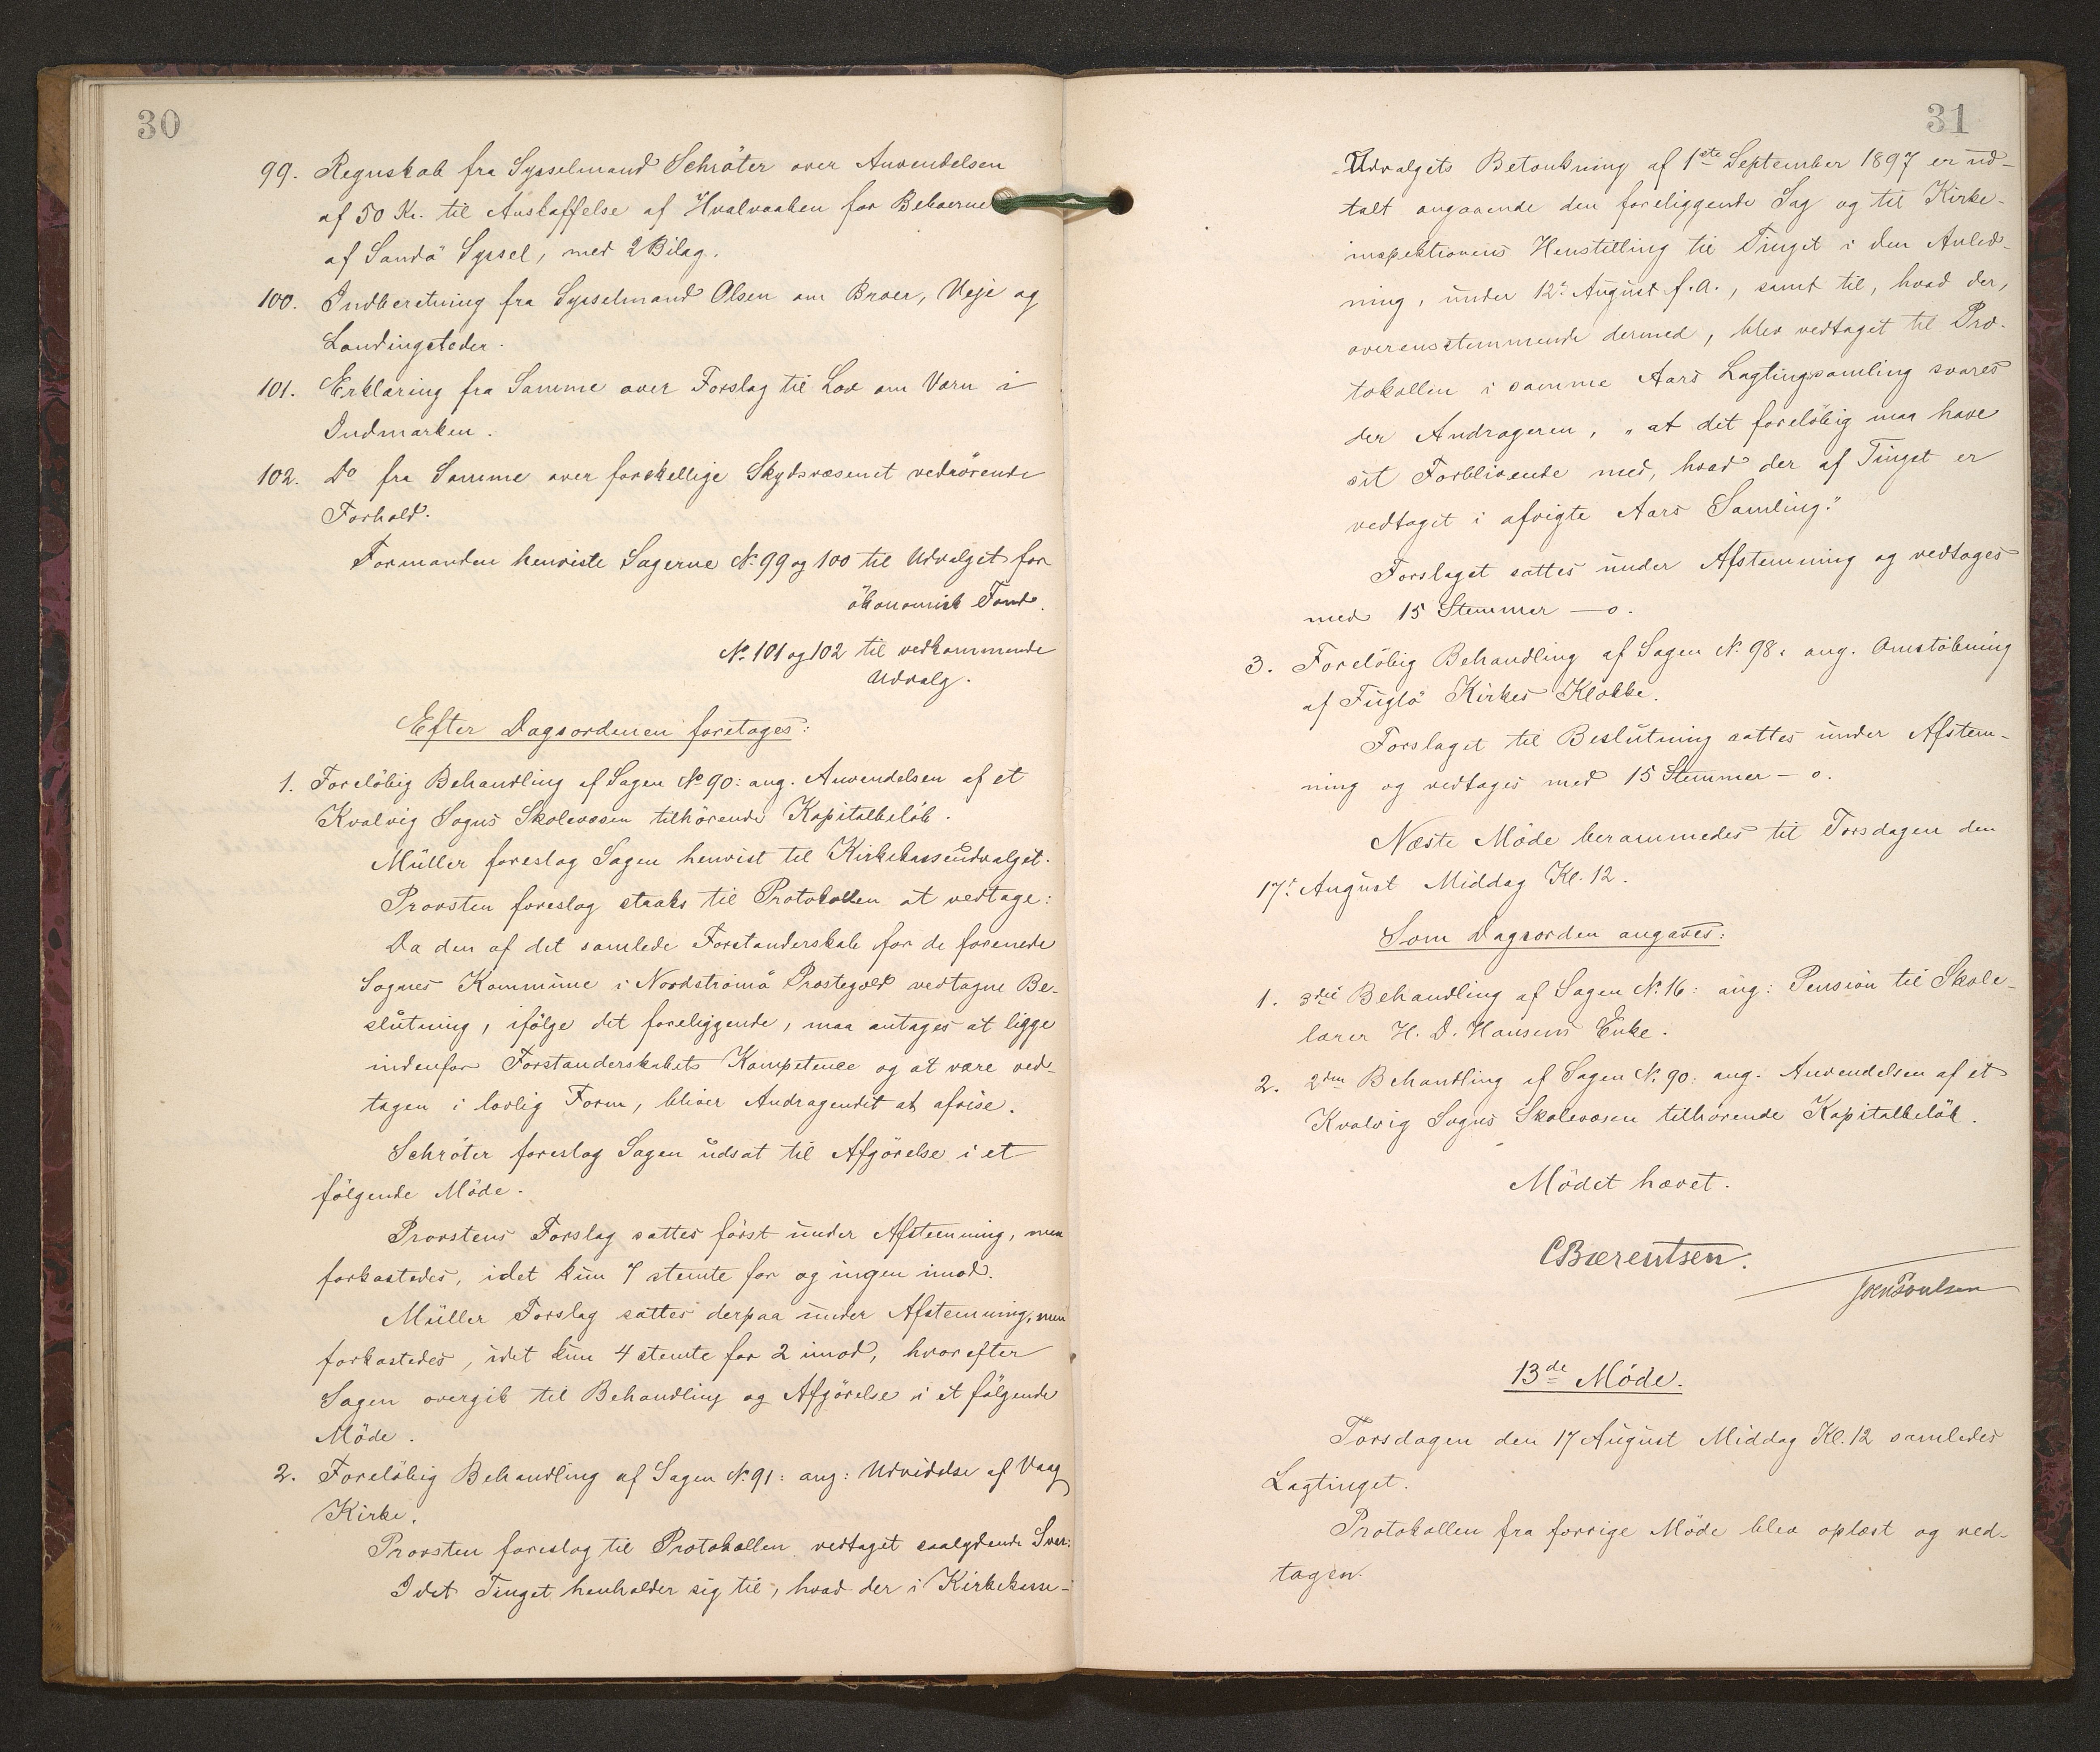 30
99. Regnskab fra Sysselmand Schröter over Anvendelsen
af 50 Kr. til Anskaffelse af Hvalvaaben for Beboerne
af Sandö Syssel, med 2 Bilag.
100. Indberetning fra Sysselmand Olsen om Broer, Veje og
Landingsteder.
101. Erklæring fra Samme over Forslag til Lov om Værn i
Indmarken.
102. Do fra Samme over forskellige Skydsvæsenet vedrörende
Forhold.
Formanden henviste Sagerne No 99 og 100 til Udvalget for
ökonomisk Fond.
No 101 og 102 til vedkommende
Udvalg.
Efter Dagsordenen foretages:
1. Forelöbig Behandling af Sagen No 90: ang. Anvendelsen af et
Kvalvig Sogns Skolevæsen tilhörende Kapitalbelöb.
Müller foreslog Sagen henvist til Kirkekasseudvalget.
Provsten foreslog straks til Protokollen at vedtage:
Da den af det samlede Forstanderskab for de forenede
Sognes Kommune i Nordströmö Præstegæld vedtagne Be-
slutning, ifölge det foreliggende, maa antages at ligge
indenfor Forstanderskabets Kompetence og at være ved-
tagen i lovlig Form, bliver Andragendet at afvise.
Schröter foreslog Sagen udsat til Afgörelse i et
fölgende Möde.
Provstens Forslag sattes först under Afstemning, men
forkastedes, idet kun 7 stemte for og ingen imod.
Müller Forslag sattes derpaa under Afstemning, men
forkastedes, idet kun 4 stemte for 2 imod, hvorefter
Sagen overgik til Behandling og Afgörelse i et fölgende
Möde.
2. Forelöbig Behandling af Sagen No 91: ang: Udvidelse af Vaag
Kirke.
Provsten foreslog til Protokollen vedtaget saalydende Svar:
Idet Tinget henholder sig til, hvad der i Kirkekasse-
31
Udvalgets Betænkning af 1ste September 1897 er ud-
talt angaaende den foreliggende Sag og til Kirke-
inspektionens Henstilling til Tinget i den Anled-
ning, under 12t August f.A., samt til, hvad der,
overensstemmende dermed, blev vedtaget til Pro-
tokollen i samme Aars Lagtingssamling svares
der Andrageren, „at det forelöbig maa have
sit Forblivende med, hvad der af Tinget er
vedtaget i afvigte Aars Samling."
Forslaget sattes under Afstemning og vedtages
med 15 Stemmer — o.
3. Forelöbig Behandling af Sagen No 98: ang. Omstöbning
af Fuglö Kirkes Klokke.
Forslaget til Beslutning sattes under Afstem-
ning og vedtages med 15 Stemmer — o.
Næste Möde berammedes til Torsdagen den
17t August Middag Kl. 12.
Som Dagsorden angaves:
1. 3die Behandling af Sagen No 16: ang: Pension til Skole-
lærer H. D. Hansens Enke.
2. 2den Behandling af Sagen No 90: ang. Anvendelsen af et
Kvalvig Sogns Skolevæsen tilhörende Kapitalbelöb.
Mödet hævet.
CBærentsen.
Joen Poulsen
13de Möde.
Torsdagen den 17 August Middag Kl. 12 samledes
Lagtinget.
Protokollen fra forrige Möde blev oplæst og ved-
tagen.